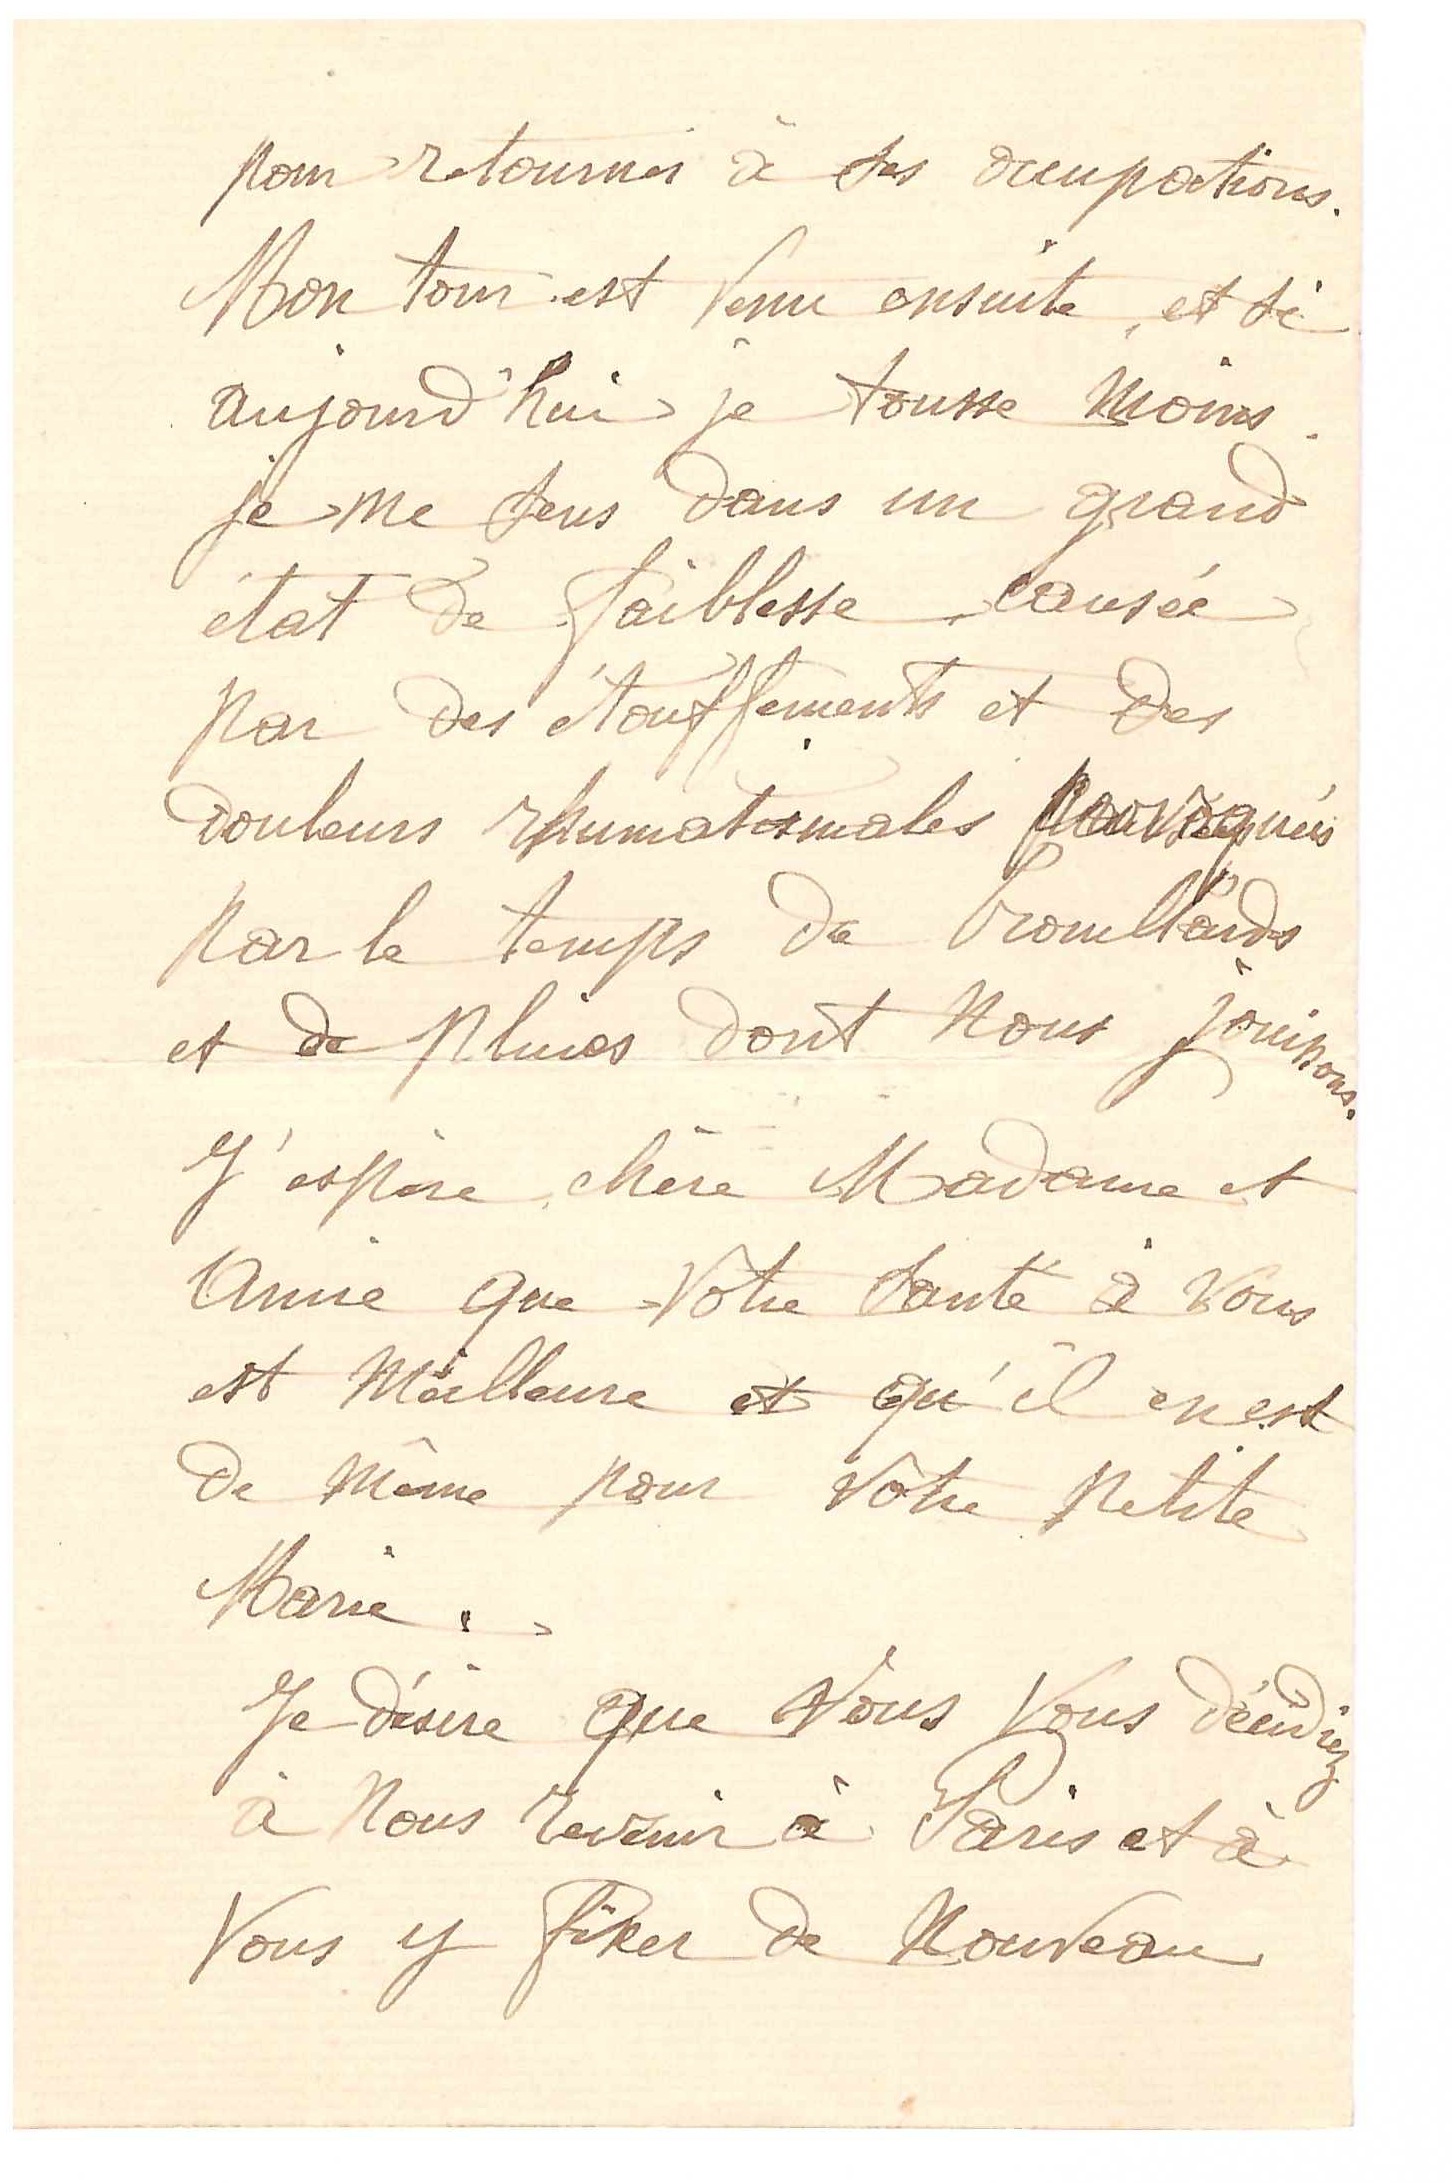 pour retourner à ses occupations.
Mon tour est venu ensuite, et si
aujourd'hui je tousse moins.
je me sens dans un grand
état de faiblesse causée
par des étouffements et des
douleurs rhumatismales provoquées
par le temps de brouillards
et de pluies dont nous jouissons.
J'espère, chère Madame et
Amie que votre santé à vous
est meilleure et qu'il en est
de même pour votre petite
Marie.
Je désire que vous vous décidiez
à nous revenir à Paris et à
vous y fixer de nouveau